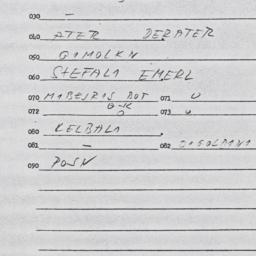 030 –
040 ATER DERATER
050 GAMOLKN
060 STEFALA EMERL
070 071 U
072 073 U
080 KELBALA
081 – 082
090 POSN